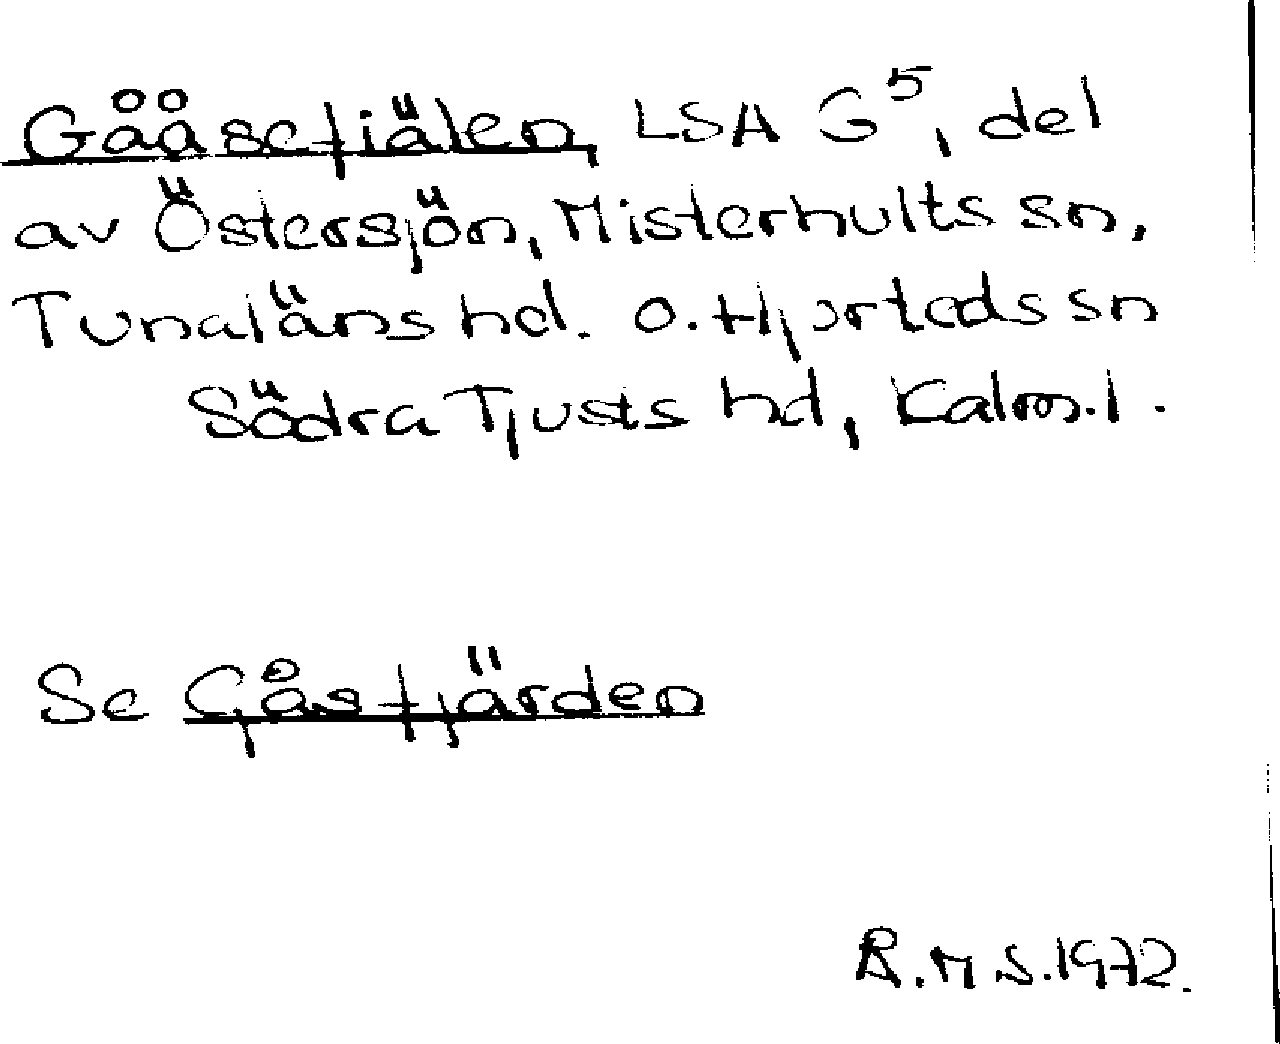 Gååsefiälen, LSA G⁵, del
av Östersjön, Misterhults sn,
Tunaläns hd. o. Hjorteds sn
Södra Tjusts hd, Kalm. l.
Se Gåsfjärden
R.M S. 1972.